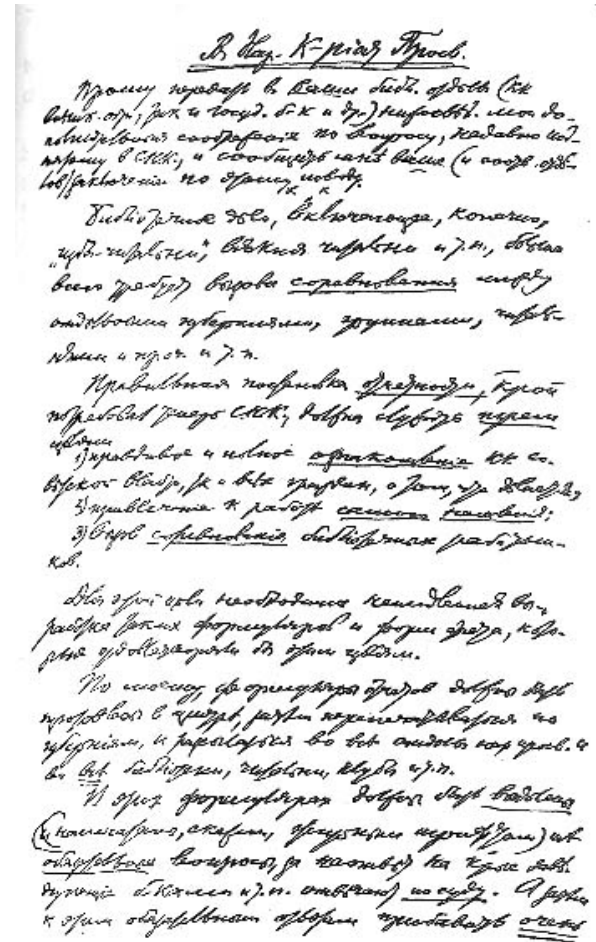 В Нар. К-риат Просв.
Прошу передать в Ваши библ. отделы (как
внешк. обр., так и госуд. б-к и др.) нижеслед. мои до-
полнительные соображения по вопросу, недавно под-
нятому в СНК, и сообщить мне Ваше (и соотв. отде-
лов) заключение по этому поводу.
Библиотечное дело, включающее, конечно,
„избы-читальни", всякие читальни и т. п., больше
всего требует вызова соревнования между
отдельными губерниями, группами, читаль-
нями и проч. и т. п.
Правильная постановка отчетности, к-рой
потребовал теперь СНК, должна служить
целям
1) правдивое и полное ознакомление как со-
ветской власти, так и всех граждан, о том, что делается;
2) привлечение к работе самого населения;
3) вызов соревнования библиотечных работни-
ков.
Для этой цели необходима немедленная вы-
работка таких формуляров и форм отчета, кото-
рые удовлетворяли бы этим целям.
По моему, формуляры отчетов должны быть
в центре, затем по
губерниям, и во все отделы нар. просв. и
во все библиотеки, читальни, клубы и т. п.
В этих формулярах должны быть выделены
(и напечатаны, скажем, жирным шрифтом)
обязательные вопросы, за на к-рые заве-
дующие б-ками и т. п. отвечают по суду. А затем
к этим обязательным прибавить очень